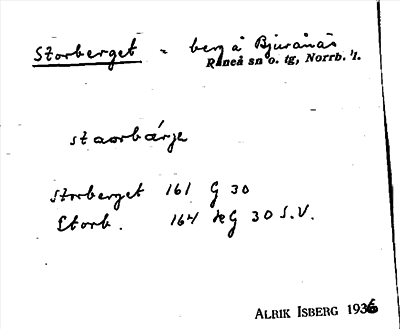 Storberget - berg å Bjuränäs
Råneå sn o. tg, Norrb. l.
staorbárje
Storberget 161 G 30
Storb. 164 G 30 S.V.
ALRIK ISBERG 1936